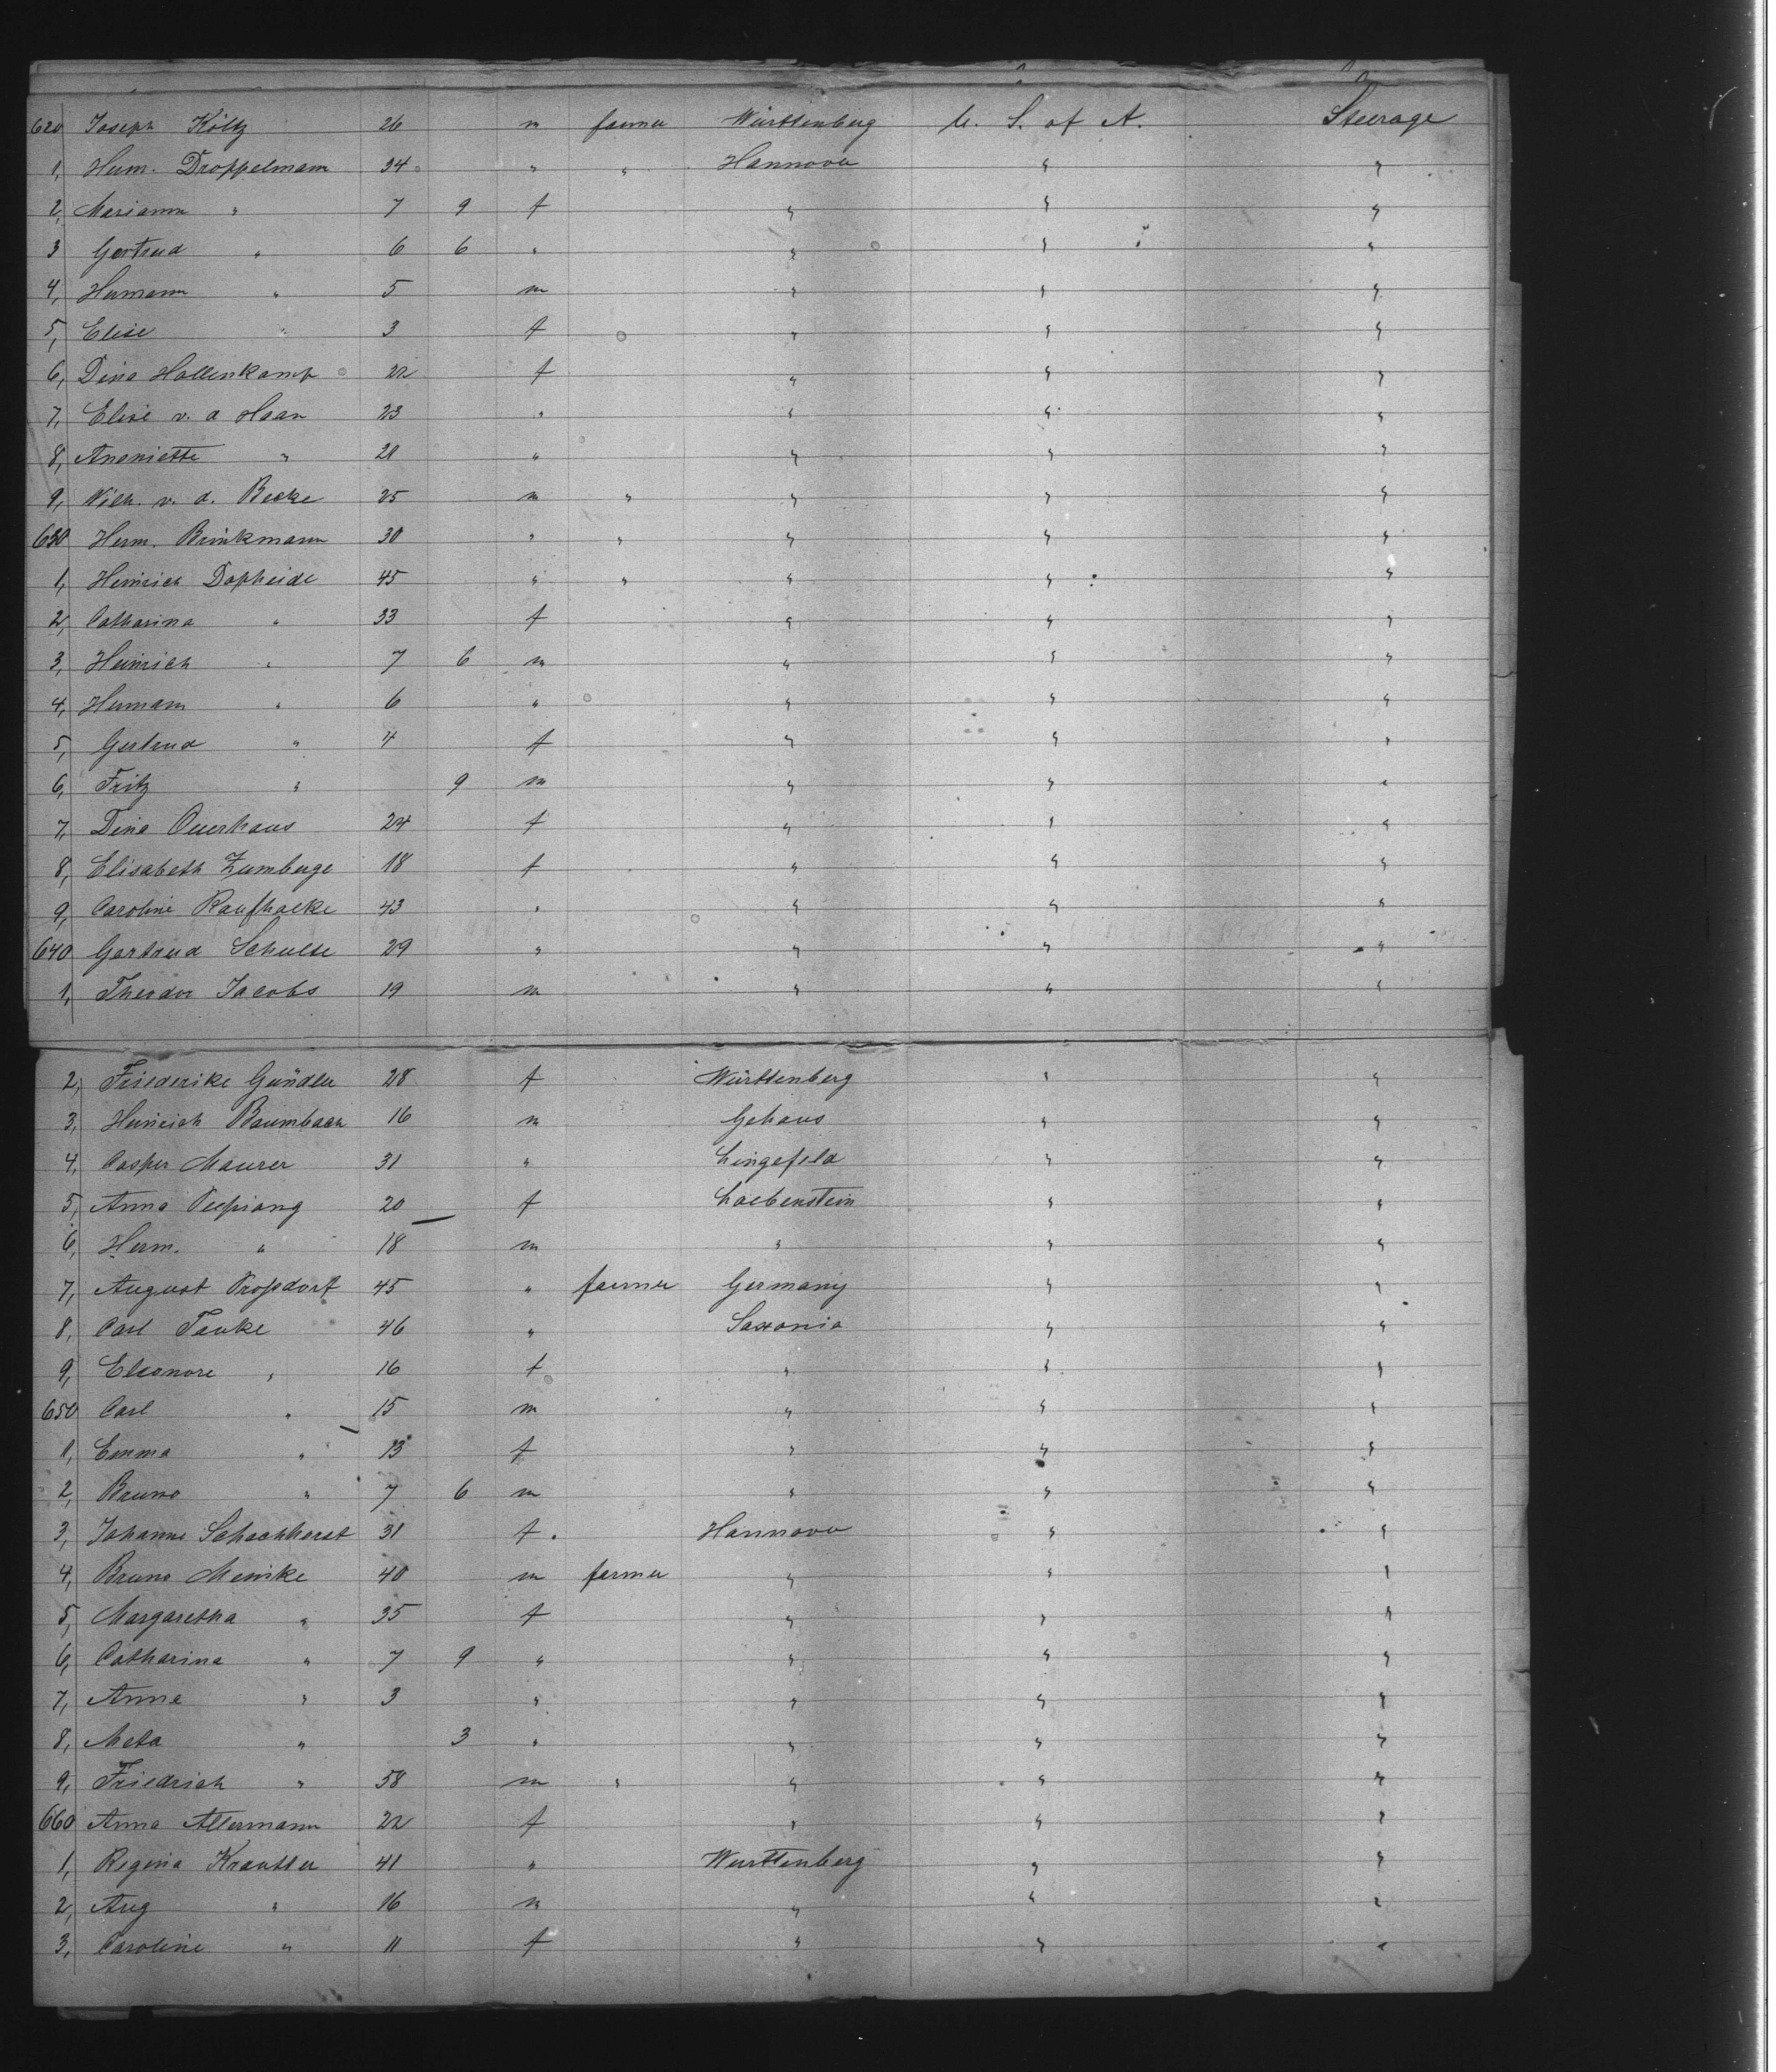 620 Joseph Költz 26 m farmer Württenberg U. S. of A. Steerage
1, Herm. Droppelmann 34 " " Hannover " "
2, Mariann " 7 9 f " " "
3 Gertrud " 6 6 " " " "
4, Hermann " 5 m " " "
5, Elise " 3 f " " "
6, Dina Hollenkamp 22 f " " "
7, Elise v. d Haar 23 " " " "
8, " " " " "
9, Wilh. v. d. Becke 25 m " " " "
630 Herm. Brinkmann 30 " " " " "
1, Heinrich Dopheide 45 " " " " "
2, Catharina " 33 f " " "
3, Heinrich " 7 6 m " " "
4, Hermann " 6 " " " "
5, Gertrud " 4 f " " "
6, Fritz " 9 m " " "
7, Dina Ouerhaus 24 f " " "
8, Elisabeth Zumberge 18 f " " "
9, Caroline 43 " " " "
640 Gertrud Schulte 29 " " " "
1, Theodor Jacobs 19 m " " "
2, Friederike Gündler 28 f Württenberg " "
3, Heinrich Baumbach 16 m Gehaus " "
4, Casper Maurer 31 " Lingefeld " "
5, Anna 20 f Loebenstein " "
6, Herm. " 18 m " " "
7, August Propsdorf 45 " farmer Germany " "
8, Carl Tauke 46 " Saxonia " "
9, Eleonore " 16 f " " "
650 Carl " 15 m " " "
1, Emma " 13 f " " "
2, Bruno " 7 6 m " " "
3, Johanne Schachhorst 31 f. Hannover " "
4, Bruno Meinike 40 m farmer " " "
5, Margaretha " 35 f " " "
6, Catharina " 7 9 " " " "
7, Anna " 3 " " " "
8, Meta " 3 " " " "
9, Friedrich " 58 m " " " "
660 Anna Allermann 22 f " " "
1, Regina Krautter 41 " Wurttenberg " "
2, Aug " 16 m " " "
3, Caroline " 11 f " " "